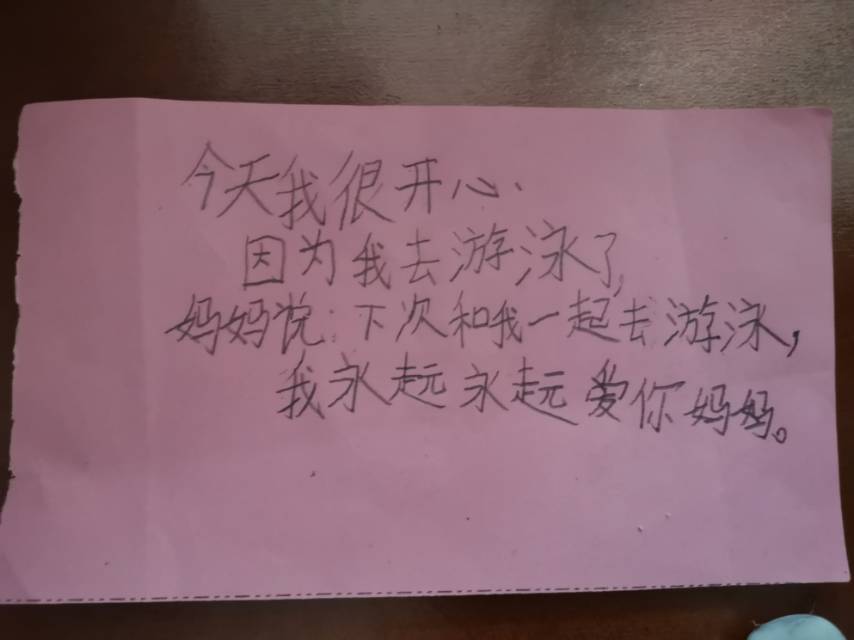 今天我很开心.
因为我去游泳了,
妈妈说:下次和我一起去游泳,
我永远永远爱你妈妈。